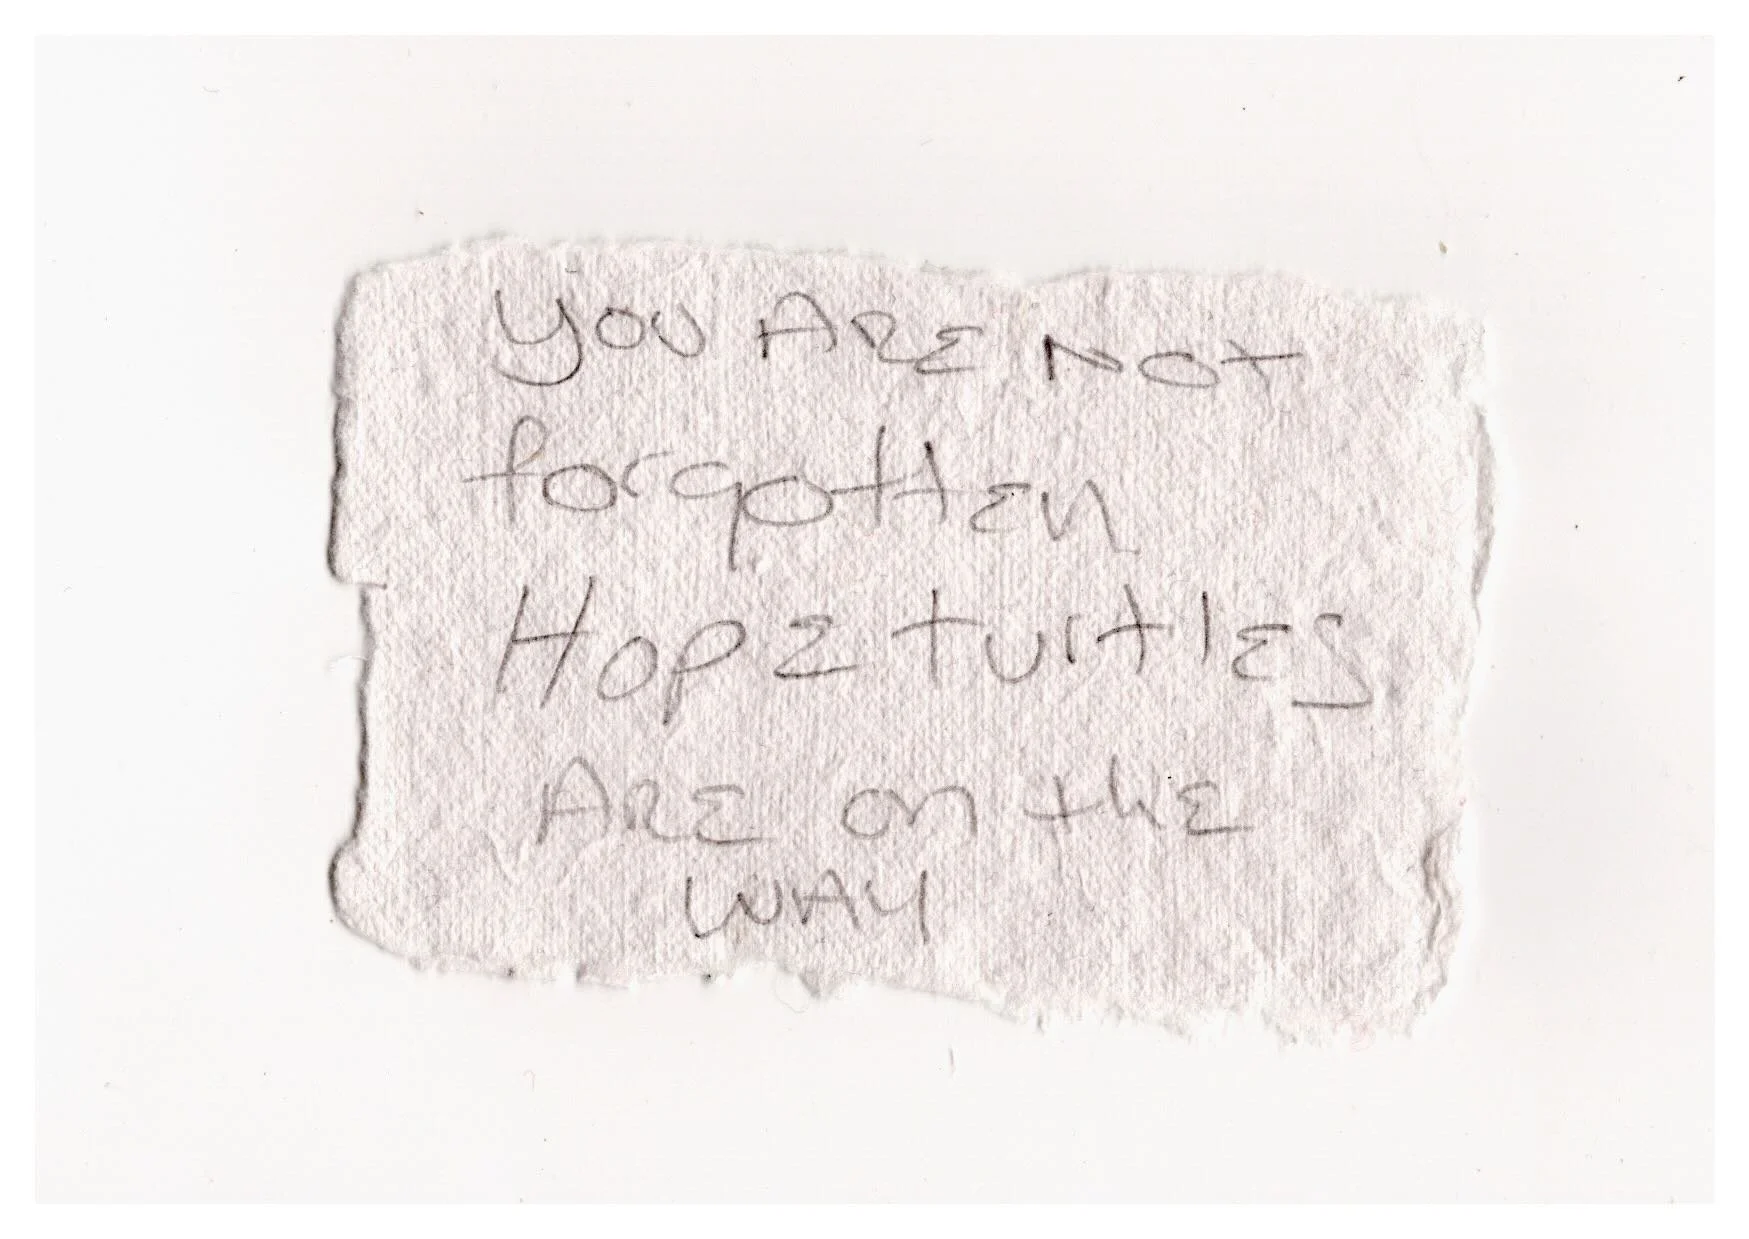 you ARE NOT
forgotten
HOPE turtles
ARE on the
WAY